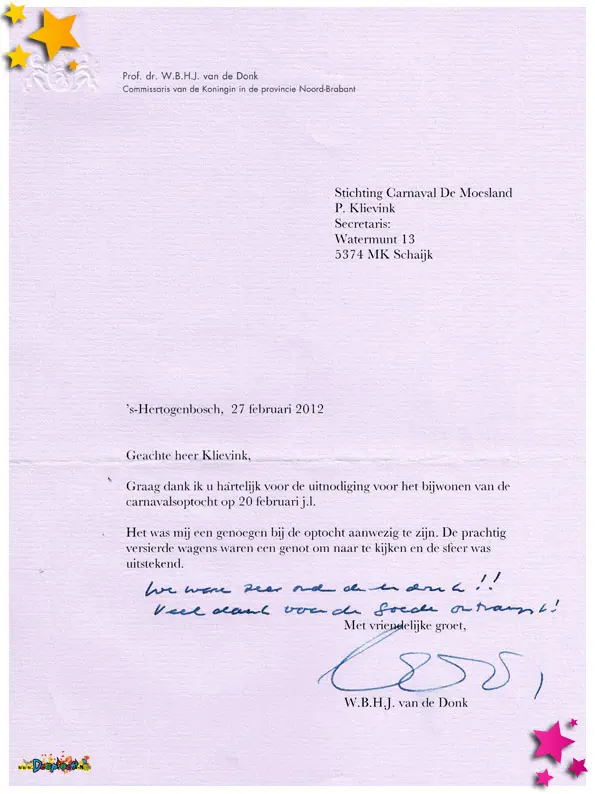 Prof. dr. W.B.H.J. van de Donk
Commissaris van de Koningin in de provincie Noord-Brabant
Stichting Carnaval De Moesland
P. Klievink
Secretaris:
Watermunt 13
5374 MK Schaijk
's-Hertogenbosch, 27 februari 2012
Geachte heer Klievink,
Graag dank ik u hartelijk voor de uitnodiging voor het bijwonen van de
carnavalsoptocht op 20 februari j.l.
Het was mij een genoegen bij de optocht aanwezig te zijn. De prachtig
versierde wagens waren een genot om naar te kijken en de sfeer was
uitstekend.
We waren zeer onder de indruk!!
Veel dank voor de goede ontvangst!
Met vriendelijke groet,
W.B.H.J. van de Donk